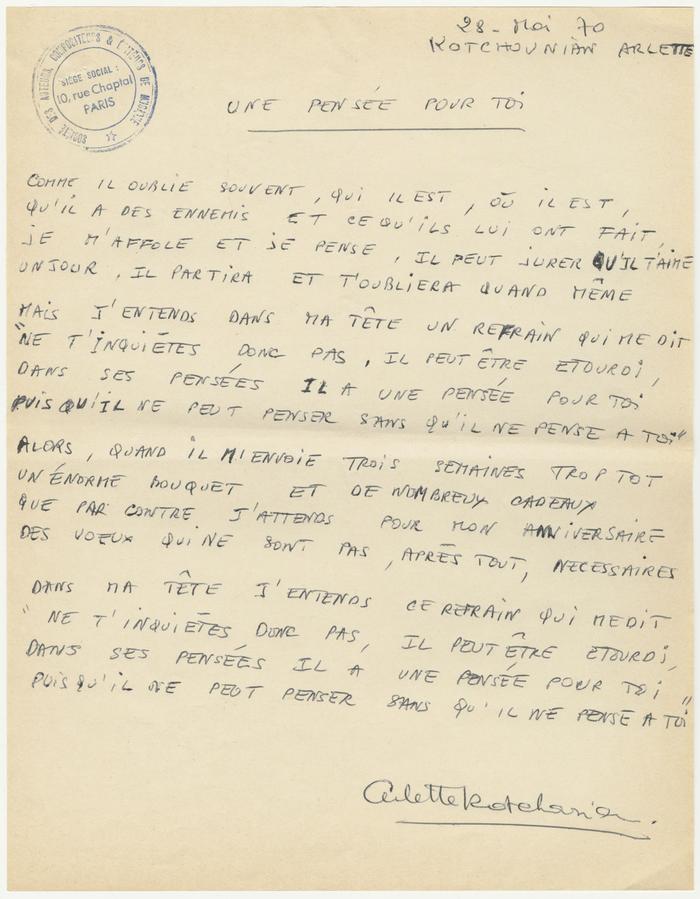 28 - Mai 70
KOTCHOUNIAN ARLETTE
SOCIÉTÉ DES AUTEURS, COMPOSITEURS & ÉDITEURS DE MUSIQUE
SIÈGE SOCIAL :
10, rue Chaptal
PARIS
UNE PENSÉE POUR TOI
COMME IL OUBLIE SOUVENT, QUI IL EST, OÙ IL EST,
QU'IL A DES ENNEMIS ET CE QU'ILS LUI ONT FAIT,
JE M'AFFOLE ET JE PENSE, IL PEUT JURER QU'IL T'AIME
UN JOUR, IL PARTIRA ET T'OUBLIERA QUAND MÊME
MAIS J'ENTENDS DANS MA TÊTE UN REFRAIN QUI ME DIT
"NE T'INQUIÉTES DONC PAS, IL PEUT ÊTRE ETOURDI,
DANS SES PENSÉES IL A UNE PENSÉE POUR TOI
PUIS QU'IL NE PEUT PENSER SANS QU'IL NE PENSE A TOI"
ALORS, QUAND IL M'ENVOIE TROIS SEMAINES TROP TOT
UN ÉNORME BOUQUET ET DE NOMBREUX CADEAUX
QUE PAR CONTRE J'ATTENDS POUR MON ANNIVERSAIRE
DES VOEUX QUI NE SONT PAS, APRÈS TOUT, NECESSAIRES
DANS MA TÊTE J'ENTENDS CE REFRAIN QUI ME DIT
"NE T'INQUIÉTES DONC PAS, IL PEUT ÊTRE ETOURDI,
DANS SES PENSÉES IL A UNE PENSÉE POUR TOI
PUISQU'IL NE PEUT PENSER SANS QU'IL NE PENSE A TOI"
Arlette Kotchounian.